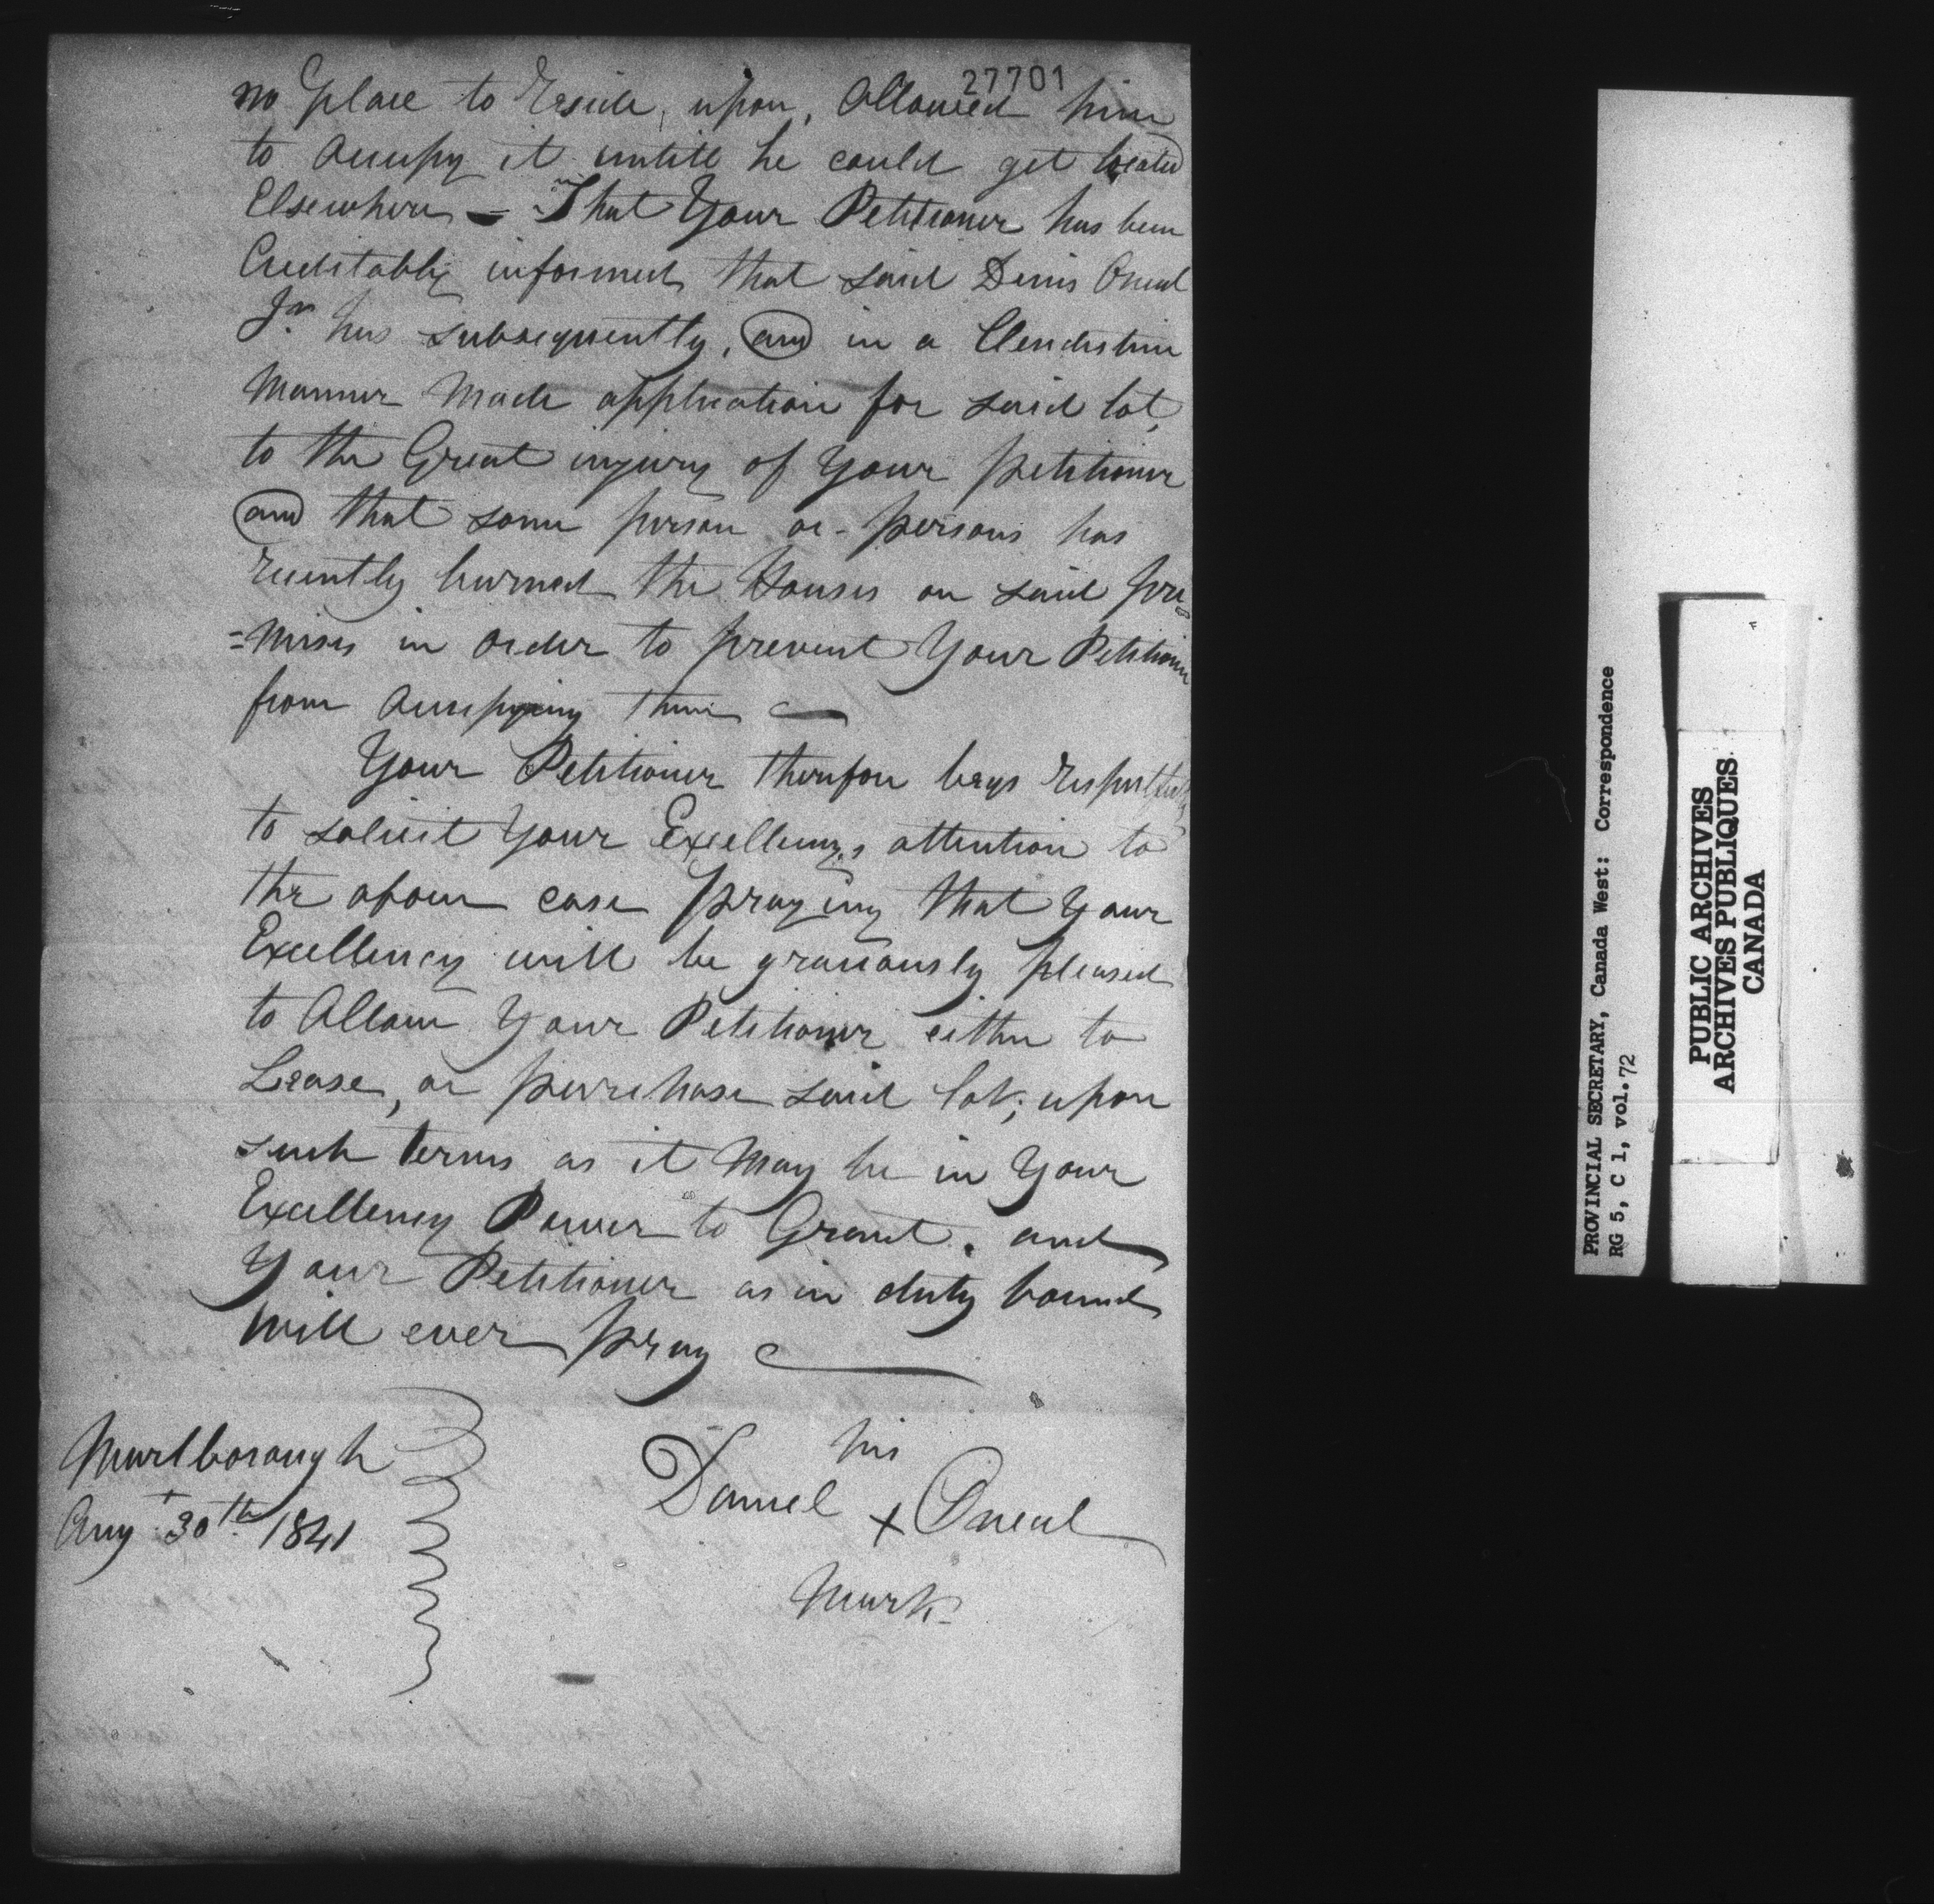 27701
no place to Reside, upon, Allowed him
to Occupy it untill he could get located
Elsewhere — That Your Petitioner has been
Creditably informed that said Denis Oneal
Jr. has subsequently, and in a Clendistine
Manner Made application for said lot,
to the Great injury of Your petitioner
and that some person or persons has
recently burned the Houses on said pre=
=mises in order to prevent Your Petitioner
from Occupying them —
Your Petitioner therefore begs respectfully
to solicit Your Excellency,s attention to
the above case praying that Your
Excellency will be graciously pleased
to Allow Your Petitioner either to
Lease, or purchase said lot; upon
such terms as it May be in Your
Excellency Power to Grant. and
Your Petitioner as in duty bound
will ever pray —
Marlborough
Augt 30th 1841
his
Daniel + Oneal
Mark
PROVINCIAL SECRETARY, Canada West: Correspondence
RG 5, C 1, vol. 72
PUBLIC ARCHIVES
ARCHIVES PUBLIQUES
CANADA